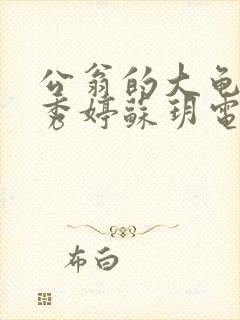 公翁的大龟
秀婷蘇玥電
布白